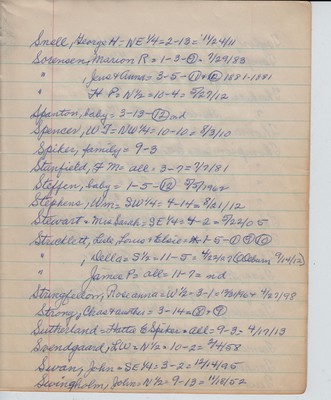 Snell, George H = NE 1/4 = 2-13 = 11/22/11
Sorensen, Marion R = 1-3-⑦ = 7/29/83
" , Jens & Anna = 3-5-①+② 1881-1881
" H P = N 1/2 = 10-4 = 5/27/12
Spanton, baby = 3-13-⑫ nd
Spencer, W J = NW 1/4 = 10-10 = 8/3/10
Spiker, family = 9-3
Stanfield, F M = all = 3-7 = 7/7/81
Steffen, baby = 1-5-⑫
Stephens, Wm = SW 1/4 = 9-14 = 8/21/12
Stewart = Mrs Sarah = SE 1/4 = 4-2 = 5/22/05
Stucklett, Lulu, Louis & Elsie = 1-5-
" , Della = S 1/2 = 11-5 = 4/22/27
" James P = all = 11-7 = nd
Roseanna = W 1/2 = 3-1 =
Strong, Chas & = 3-14 = ⑧+⑨
Sutherland = Hattie E Spiker = all = 9-3 = 4/17/13
Svendgaard, L W = N 1/2 = 10-2 = 2/4/58
Swan, John = SE 1/4 = 3-2 = 12/14/95
Swingholm, John = N 1/2 = 9-13 = 11/18/52